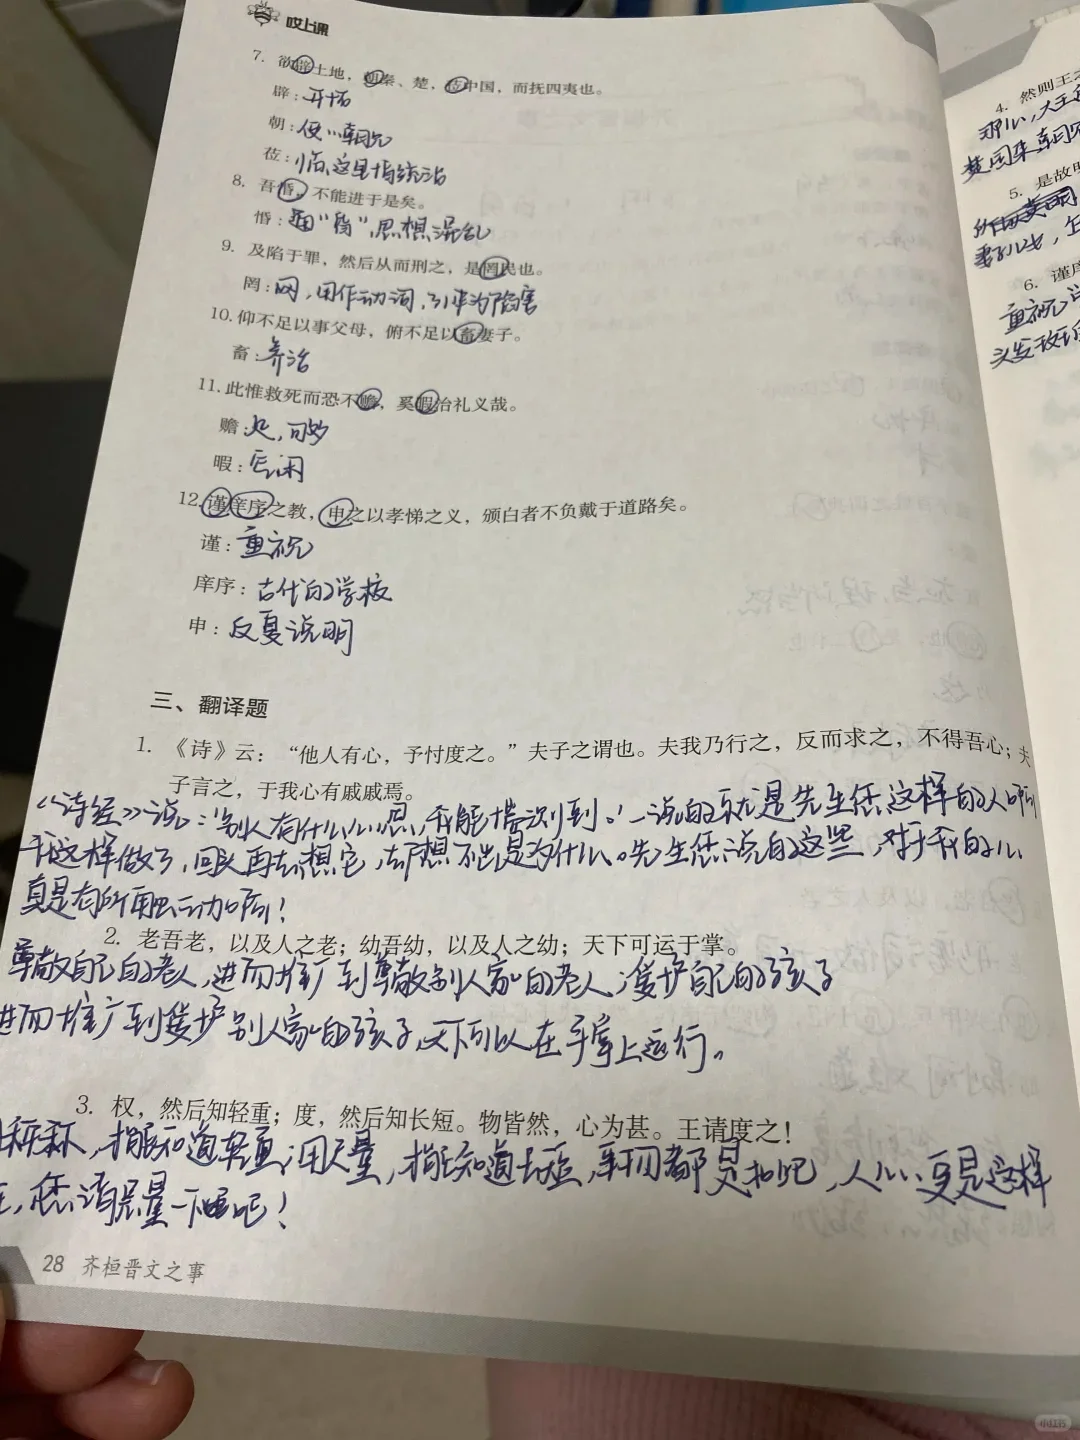 哎上课
7. 欲辟土地，朝秦、楚，莅中国，而抚四夷也。
辟：开拓
朝：使……朝见
莅：临，这里指统治
8. 吾惛，不能进于是矣。
惛：通“昏”，思想混乱
9. 及陷于罪，然后从而刑之，是罔民也。
罔：网，用作动词，引申为陷害
10. 仰不足以事父母，俯不足以畜妻子。
畜：养活
11. 此惟救死而恐不赡，奚暇治礼义哉。
赡：足，可够
暇：空闲
12. 谨庠序之教，申之以孝悌之义，颁白者不负戴于道路矣。
谨：重视
庠序：古代的学校
申：反复说明
三、翻译题
1. 《诗》云：“他人有心，予忖度之。”夫子之谓也。夫我乃行之，反而求之，不得吾心；夫
子言之，于我心有戚戚焉。
《诗经》说：‘别人有什么心思，我能揣测到。’说的就是先生您这样的人啊
我这样做了，回头再去想它，却想不出是为什么。先生您说的这些，对于我的心
真是有所触动啊！
2. 老吾老，以及人之老；幼吾幼，以及人之幼；天下可运于掌。
尊敬自己的老人，进而推广到尊敬别人家的老人，爱护自己的孩子
进而推广到爱护别人家的孩子，天下可以在手掌上运行。
3. 权，然后知轻重；度，然后知长短。物皆然，心为甚。王请度之！
称称，才能知道轻重；用尺量，才能知道长短，事物都是如此，人心更是这样
，您请思量一下吧！
28 齐桓晋文之事
4. 然则王之
那么，大王
楚国来朝见
5. 是故明
6. 谨庠
重视
头发
小红书